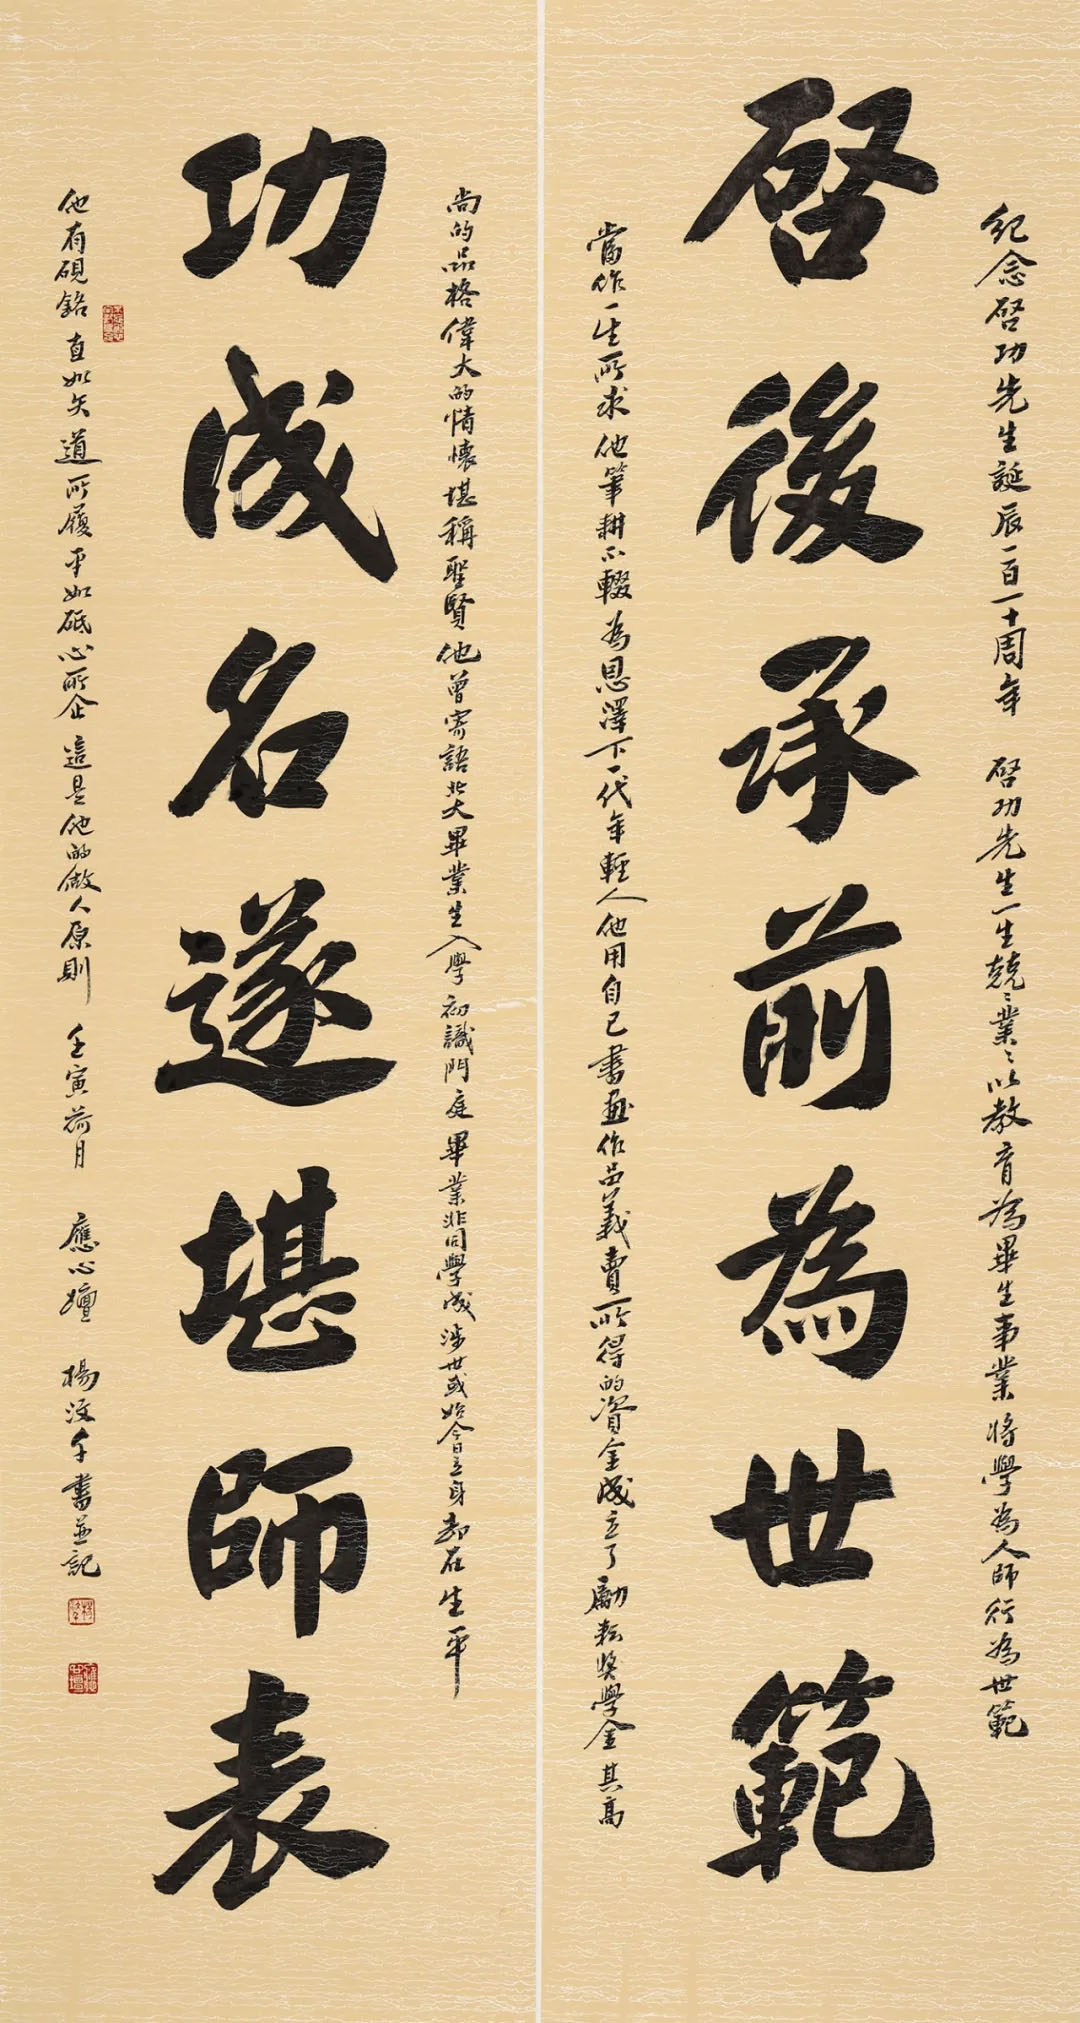 紀念啓功先生誕辰一百一十周年 啓功先生一生兢〻業〻以教育為畢生事業將學為人師行為世範
啓後承前為世範
當作一生所求他筆耕不輟為恩澤下一代年輕人他用自己書畫作品義賣所得的資金成立了勵耘獎學金其高
尚的品格偉大的情懷堪稱聖賢他曾寄語北大畢業生入學初識門庭畢業非同學成涉世或始今日立身却在生平
功成名遂堪師表
他有硯銘直如矢道所履平如砥心所企這是他的做人原則 壬寅荷月 應心壇 楊汶千書並記